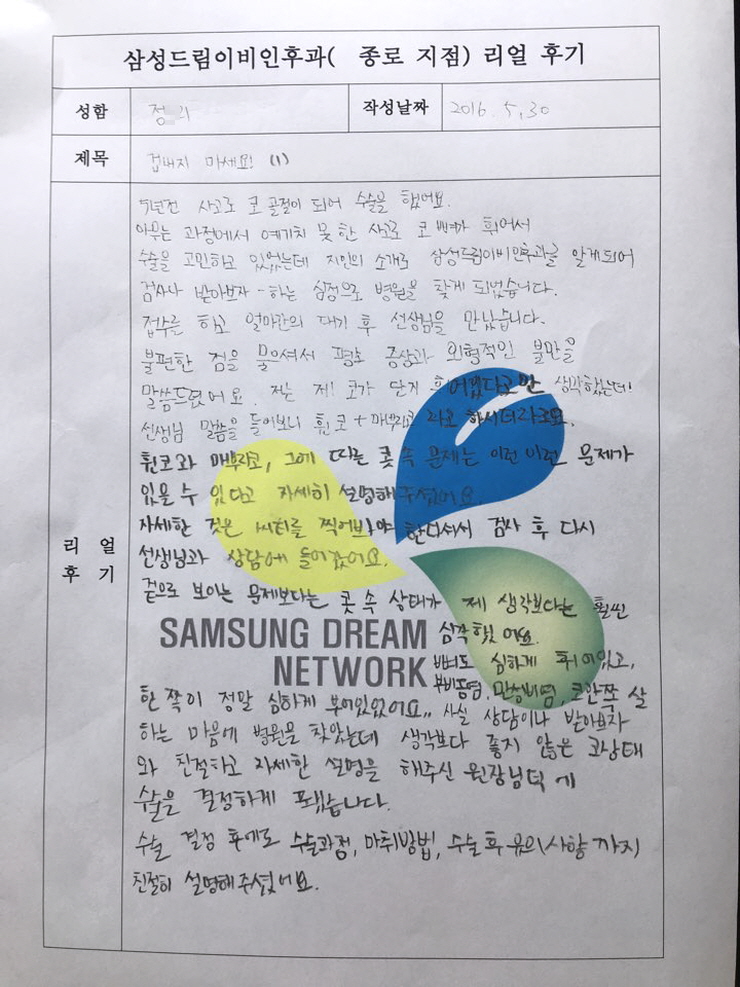 삼성드림이비인후과( 종로 지점) 리얼 후기
성함 정 작성날짜 2016. 5. 30
제목 겁내지 마세요! (1)
리 얼
후 기
5년전 사고로 코 골절이 되어 수술을 했어요.
아무는 과정에서 예기치 못 한 사고로 코 뼈가 휘어서
수술을 고민하고 있었는데 지인의 소개로 삼성드림이비인후과를 알게되어
검사나 받아보자 - 하는 심정으로 병원을 찾게 되었습니다.
접수를 하고 얼마간의 대기 후 선생님을 만났습니다.
불편한 점을 물으셔서 평소 증상과 외형적인 불만을
말씀드렸어요. 저는 제! 코가 단지 휘어졌다고만 생각했는데!
선생님 말씀을 들어보니 휜코 + 매부리코 라고 하시더라구요.
휜코와 매부리코, 그에 따른 콧 속 문제는 이런 이런 문제가
있을 수 있다고 자세히 설명해주셨어요.
자세한 것은 씨티를 찍어봐야 한다셔서 검사 후 다시
선생님과 상담에 들어갔어요.
겉으로 보이는 문제보다는 콧 속 상태가 제 생각보다는 훨씬
심각했어요.
SAMSUNG DREAM
NETWORK
뼈도 심하게 휘어있고,
부비동염, 만성비염, 코안쪽 살
한 쪽이 정말 심하게 부어있었어요.. 사실 상담이나 받아보자
하는 마음에 병원을 찾았는데 생각보다 좋지 않은 코상태
와 친절하고 자세한 설명을 해주신 원장님덕에
수술을 결정하게 됐습니다.
수술 결정 후에도 수술과정, 마취방법, 수술 후 유의사항 까지
친절히 설명해주셨어요.